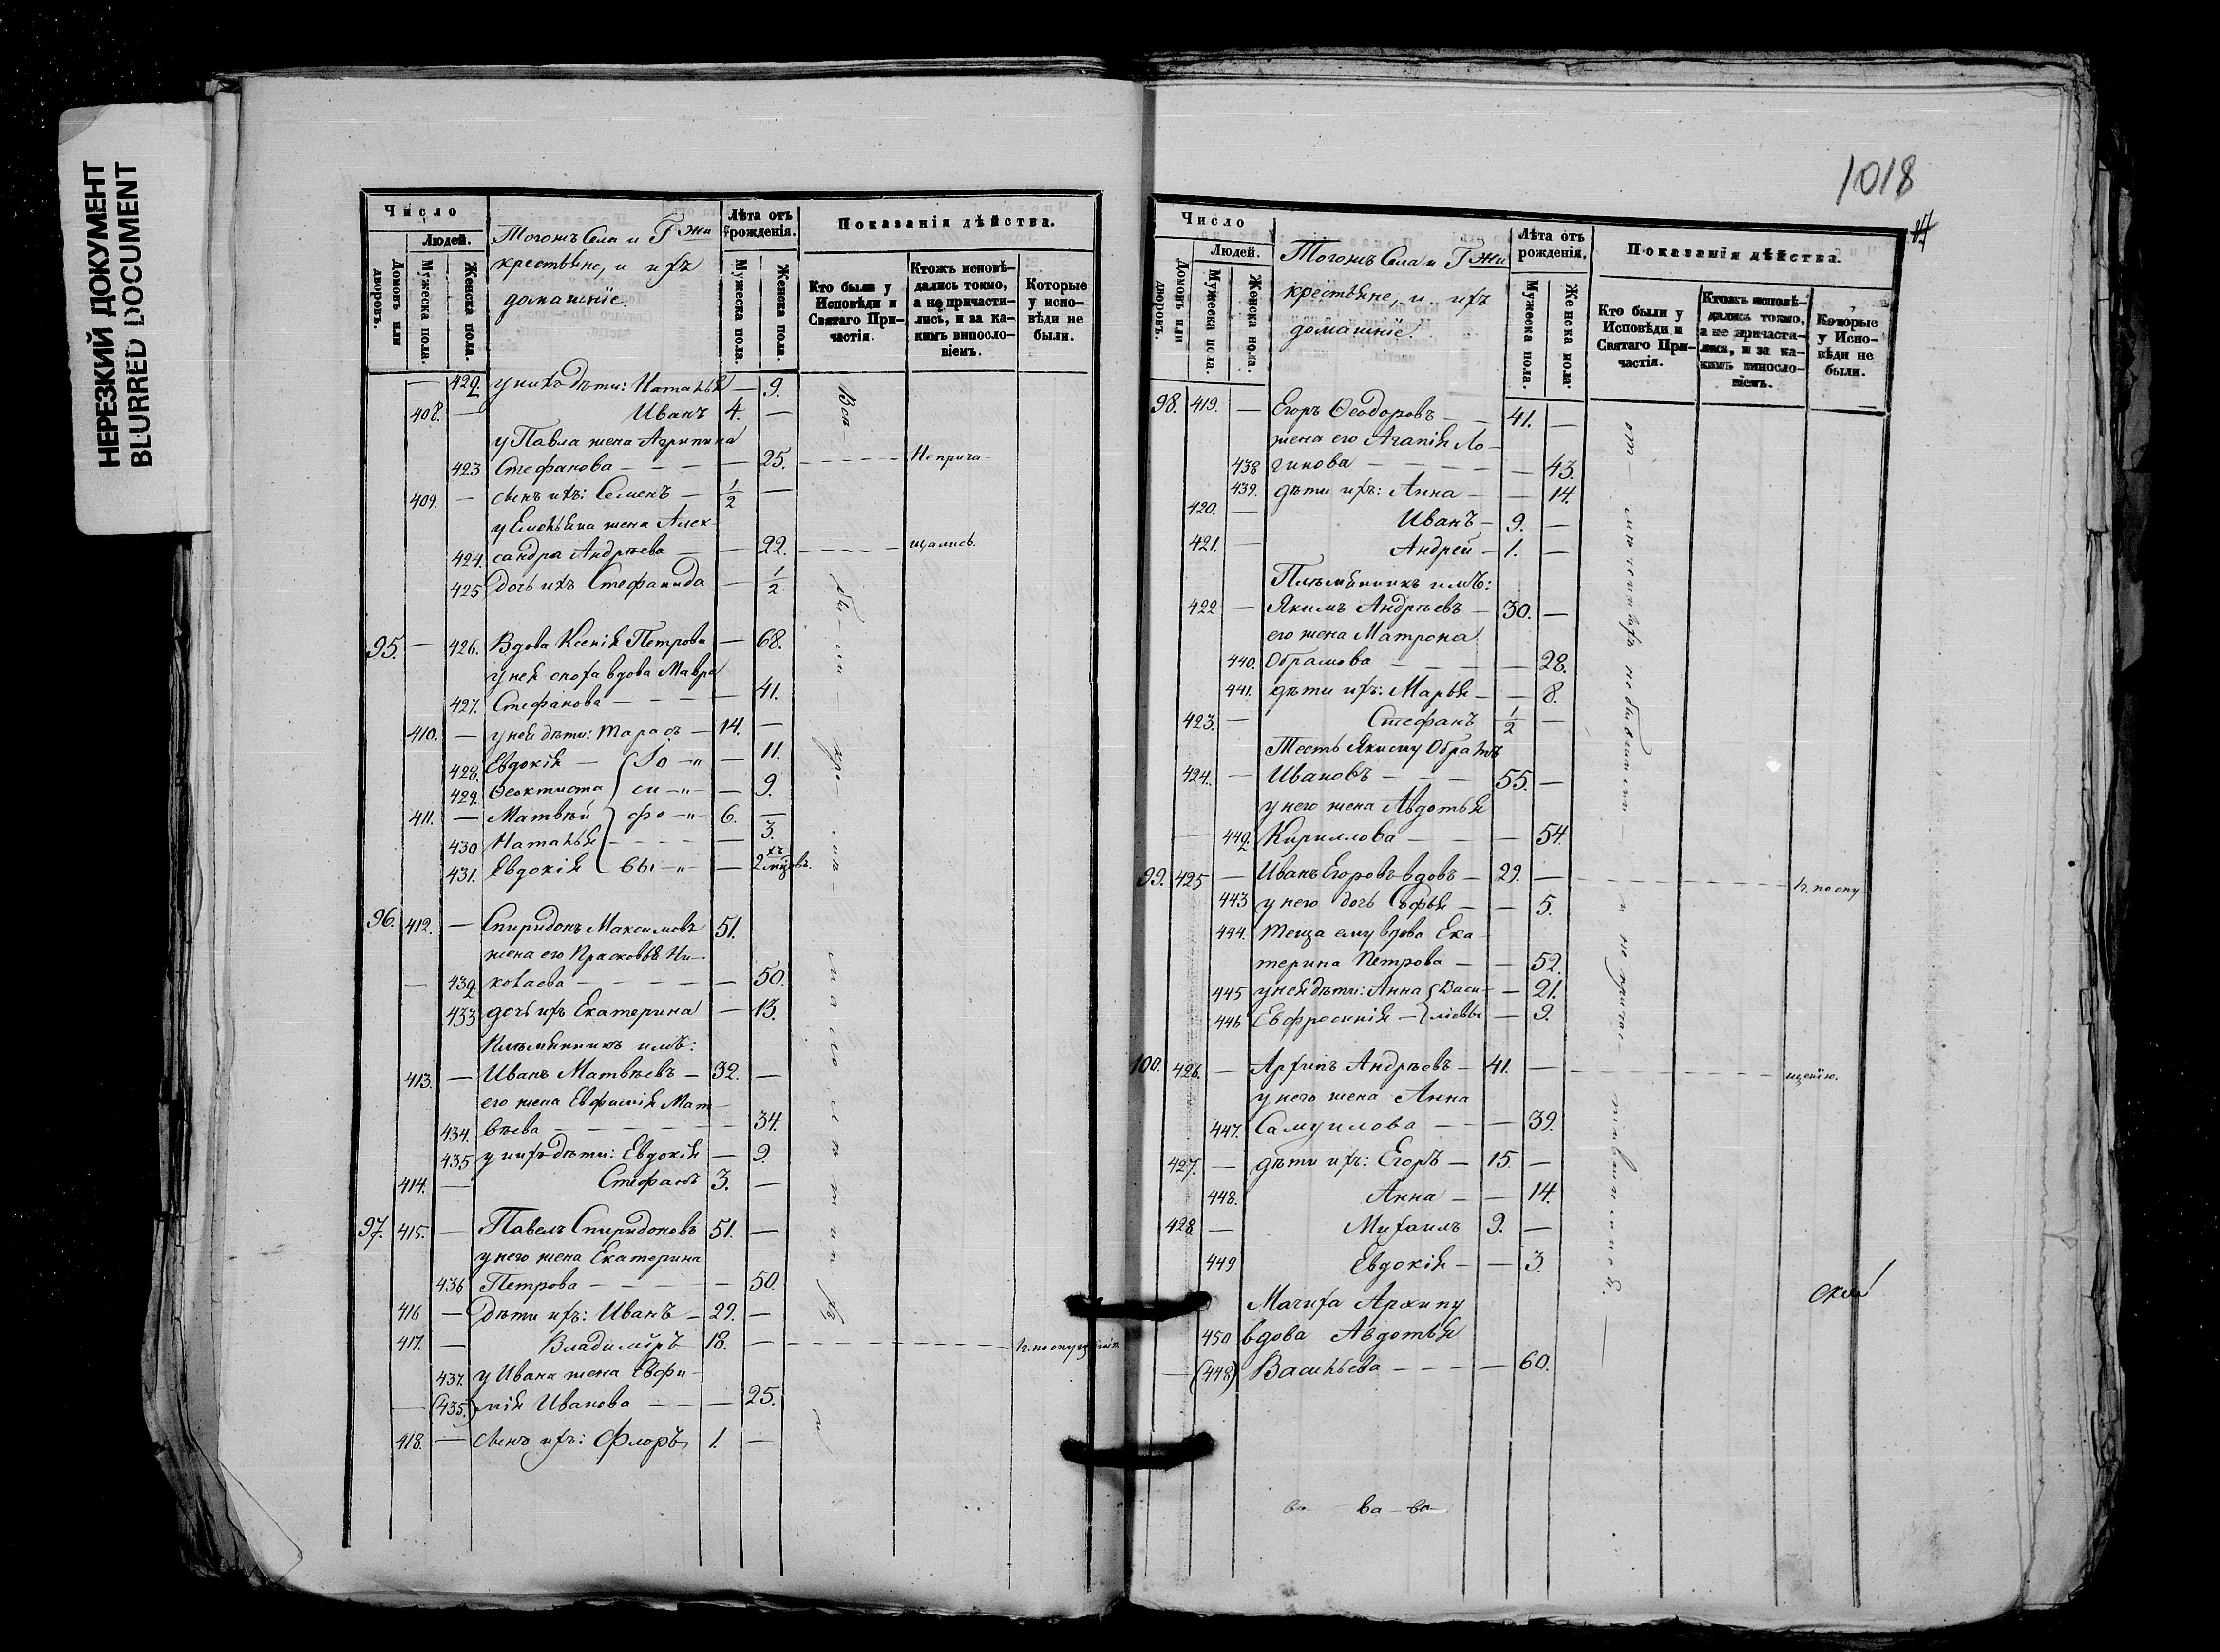 НЕРЕЗКИЙ ДОКУМЕНТ
BLURRED DOCUMENT
Число
Людей.
Домовъ или дворовъ.
Мужеска пола.
Женска пола.
Тогожъ Села и Гжи
крестьяне, и ихъ
домашніе.
Лѣта отъ рожденія.
Мужеска пола.
Женска пола.
Показанія дѣйства.
Кто были у Исповѣди и Святаго Причастія.
Ктожъ исповѣдались токмо, а не причастились, и за какимъ винословіемъ.
Которые у исповѣди не были.
— 422 у нихъ дѣти: Наталья — 9.
408. — Иванъ 4. —
у Павла жена Агрипина
423 Стефанова — — — — 25. — — — — Неприча-
409. — сынъ ихъ: Семенъ — 1/2 —
у Емельяна жена Алек-
424. сандра Андрѣева — — 22. — — — — щались.
425 дочь ихъ Стефанида — 1/2
95. — 426. Вдова Ксенія Петрова — 68.
у нея сноха вдова Мавра
427. Стефанова — — — — 41.
410. — у ней дѣти: Тарасъ — 14. —
428. Евдокія — — 11.
429. Ѳеоктиста — 9.
411. — Матвѣй 6. —
430 Наталья — 3.
431. Евдокія — 2хъ мцовъ.
96. 412. — Спиридонъ Максимовъ 51.
жена его Прасковья Ни-
— 432 колаева — — — — — 50.
433 дочь ихъ Екатерина — 13.
Племянникъ имъ:
413. — Иванъ Матвѣевъ — 32. —
его жена Евфимія Мат-
434. вѣева — — — — — 34.
435 у нихъ дѣти: Евдокія — 9.
414. — Стефанъ 3. —
97. 415. — Павелъ Спиридоновъ 51. —
у него жена Екатерина
436 Петрова — — — — — 50.
416 — дѣти ихъ: Иванъ — 29. —
417. — Владиміръ 18. — — — — н. по опущенію.
437. у Ивана жена Евфи-
— (435.) мія Иванова — — — 25.
418. — сынъ ихъ: Флоръ 1. —
1018
Число
Людей.
Домовъ или дворовъ.
Мужеска пола.
Женска пола.
Тогожъ Села и Гжи
крестьяне, и ихъ
домашніе.
Лѣта отъ рожденія.
Мужеска пола.
Женска пола.
Показанія дѣйства.
Кто были у Исповѣди и Святаго Причастія.
Ктожъ исповѣдались токмо, а не причастились, и за какимъ винословіемъ.
Которые у Исповѣди не были.
98. 419. — Егоръ Ѳеодоровъ — — 41. —
жена его Агапія Ло-
438 гинова — — — — — 43.
439. дѣти ихъ: Анна — — 14.
420. — Иванъ — 9. —
421. — Андрей — 1. —
Племянникъ имъ:
422 — Якимъ Андрѣевъ — 30. —
его жена Матрона
440. Обрамова — — — — 28.
441. дѣти ихъ: Марья — — 8.
423. — Стефанъ 1/2 —
Тесть Якиму Обрамъ
424. — Ивановъ — — — 55. —
у него жена Авдотья
— 442 Кириллова — — — 54.
99. 425 — Иванъ Егоровъ вдовъ — 29. — — — — н. по опу-
443 у него дочь Софья — — 5.
444. теща ему вдова Ека-
терина Петрова — — 52.
445 у нея дѣти: Анна Васи- — 21.
446 Евфросинія — льевы — 9.
100. 426. — Архипъ Андрѣевъ — 41. — — — — щенію.
у него жена Анна
447. Самуилова — — — 39.
427. — дѣти ихъ: Егоръ — 15. —
448. Анна — — 14.
428 — Михаилъ 9. —
449 Евдокія — — 3.
Мачиха Архипу
450 вдова Авдотья
— (448) Васильева — — — — 60.
ва — ва — ва